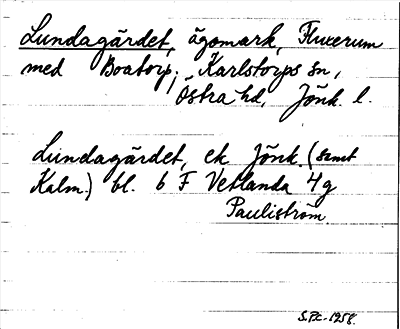 Lundagärdet, ägomark, Fluxerum
med Boatorp; Karlstorps sn,
Östra hd, Jönk. l.
Lundagärdet, ek Jönk. (samt
Kalm.) bl. 6 F Vetlanda 4g
Pauliström.
1958.